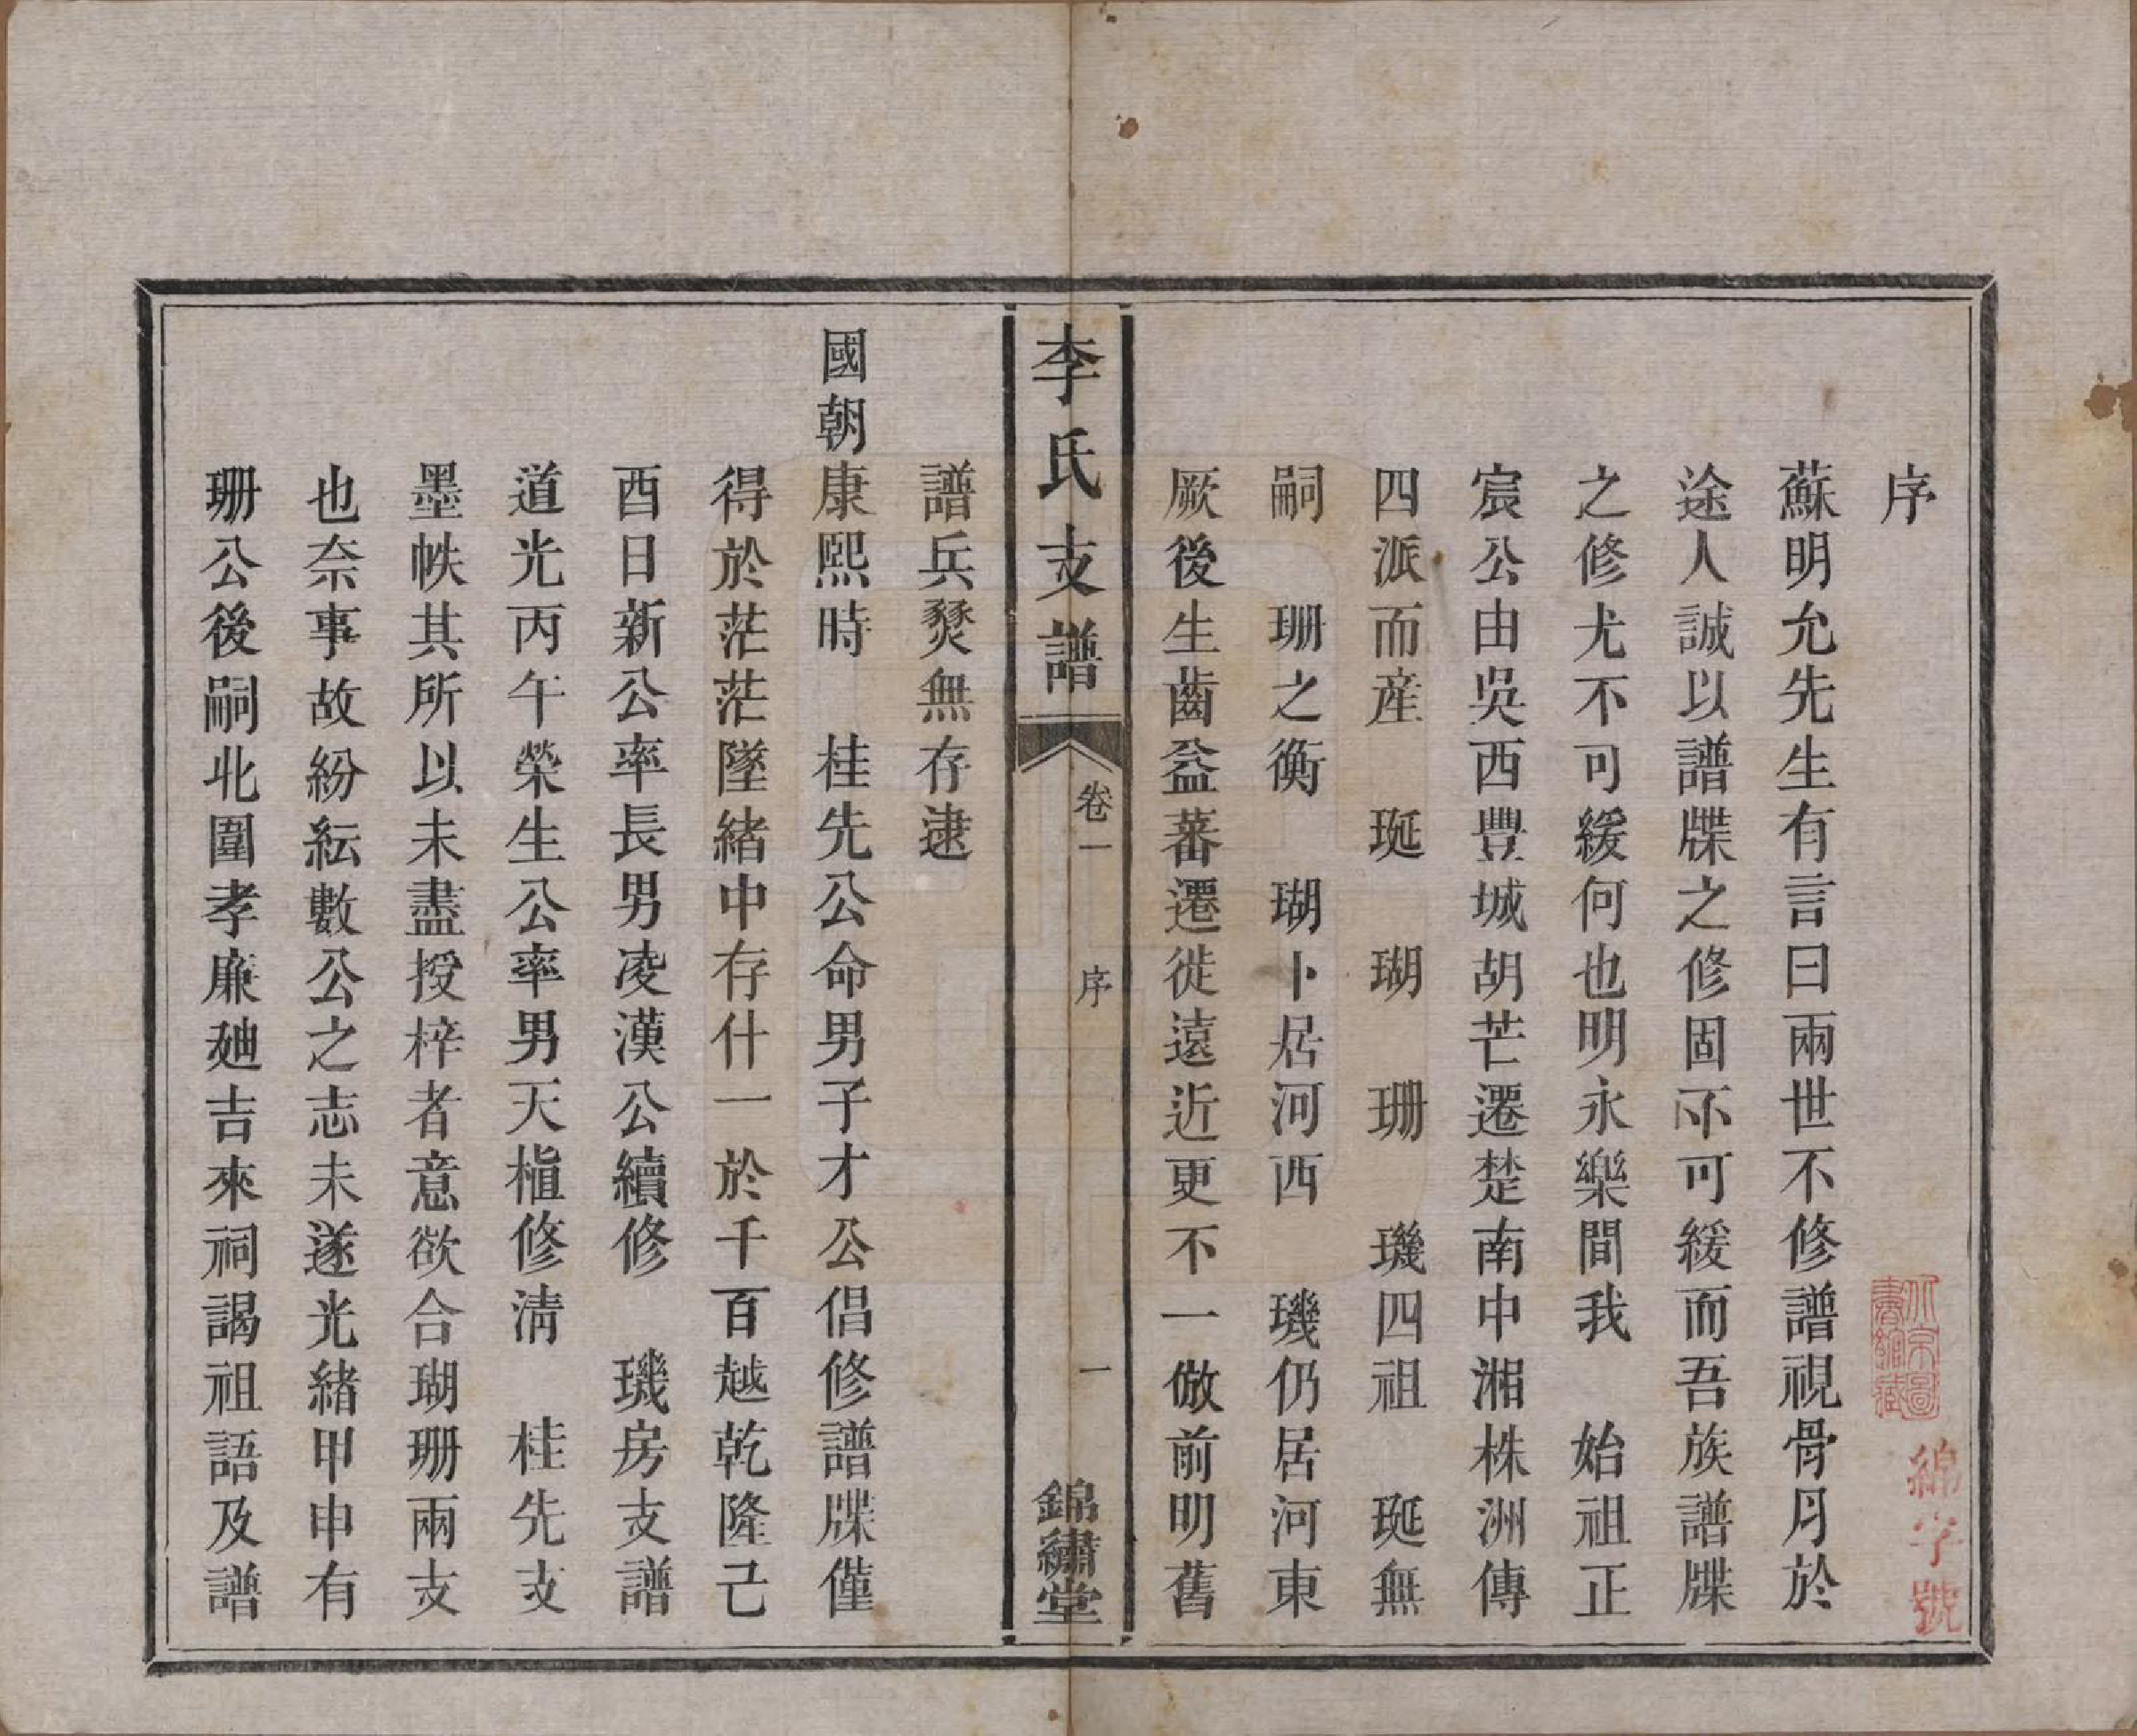 序
蘇明允先生有言曰兩世不修譜視骨月於
途人誠以譜牒之修固不可緩而吾族譜牒
之修尤不可緩何也明永樂間我 始祖正
宸公由吳西豐城胡芒遷楚南中湘株洲傳
四派而産 珽 瑚 珊 璣四祖 珽無
嗣 珊之衡 瑚卜居河西 璣仍居河東
厥後生齒益蕃遷徙遠近更不一倣前明舊
李氏支譜 卷一 序 一 錦繡堂
譜兵燹無存逮
國朝康熙時 桂先公命男子才公倡修譜牒僅
得於茫茫墜緒中存什一於千百越乾隆己
酉日新公率長男凌漢公續修 璣房支譜
道光丙午榮生公率男天楦修清 桂先支
墨帙其所以未盡授梓者意欲合瑚珊兩支
也奈事故紛紜數公之志未遂光緒甲申有
珊公後嗣北圍孝廉廸吉來祠謁祖語及譜
北京圖書館藏
綿字號